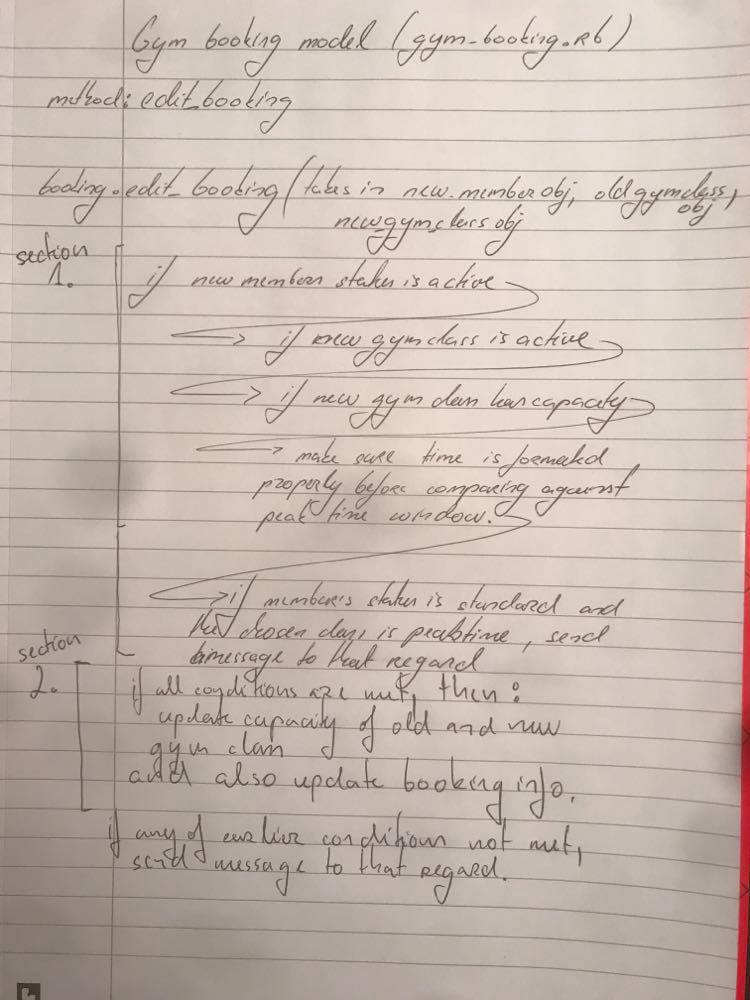 Gym booking model (gym_booking.rb)
method: edit_booking
booking.edit_booking (takes in new_member obj, old gymclass,
obj
new_gym_class obj
section
1.
if new members status is active
if new gymclass is active
if new gym class has capacity
make sure time is formated
properly before comparing against
peak time window.
if member's status is standard and
chosen class is peaktime, send
a message to that regard
section
2.
if all conditions are met, then:
update capacity of old and new
gym class
and also update booking info.
if any of earlier conditions not met,
send message to that regard.